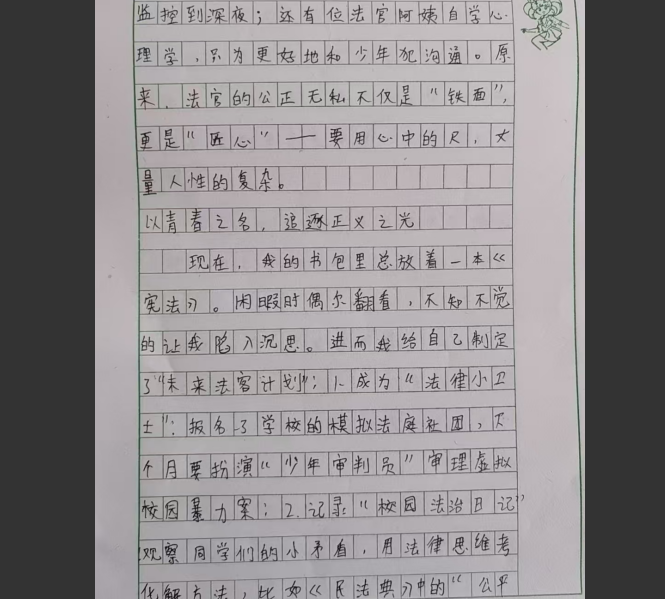 监控到深夜；还有位法官阿姨自学心
理学，只为更好地和少年犯沟通。原
来，法官的公正无私不仅是“铁面”，
更是“匠心”——要用心中的尺，丈
量人性的复杂。
以青春之名，追逐正义之光
现在，我的书包里总放着一本《
宪法》。闲暇时偶尔翻看，不知不觉
的让我陷入沉思。进而我给自己制定
了“未来法官计划”：1、成为“法律小卫
士”：报名了学校的模拟法庭社团，下
个月要扮演“少年审判员”审理虚拟
校园暴力案；2、记录“校园法治日记”
观察同学们的小矛盾，用法律思维考
化解方法，比如《民法典》中的“公平